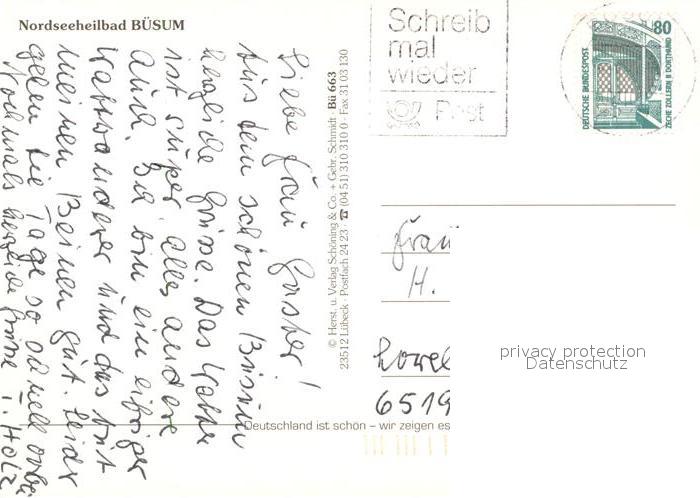 Nordseeheilbad BÜSUM
Liebe Frau Gasber!
Aus dem schönen Büsum
herzliche Grüsse. Das Wetter
ist super alles andere
auch. Ich bin ein eifriger
Wattwanderer und das tut
meinen Beinen gut. Leider
gehen die Tage so schnell vorbei
Nochmals herzliche Grüsse I. Holz
© Herst. u. Verlag Schöning & Co. + Gebr. Schmidt · Bü 663
23512 Lübeck · Postfach 24 23 · ☎ (04 51) 310 310 0 · Fax 31 03 130
Schreib
mal
wieder
Post
80
DEUTSCHE BUNDESPOST
ZECHE ZOLLERN II DORTMUND
Frau
H.
6519
privacy protection
Datenschutz
Deutschland ist schön – wir zeigen es